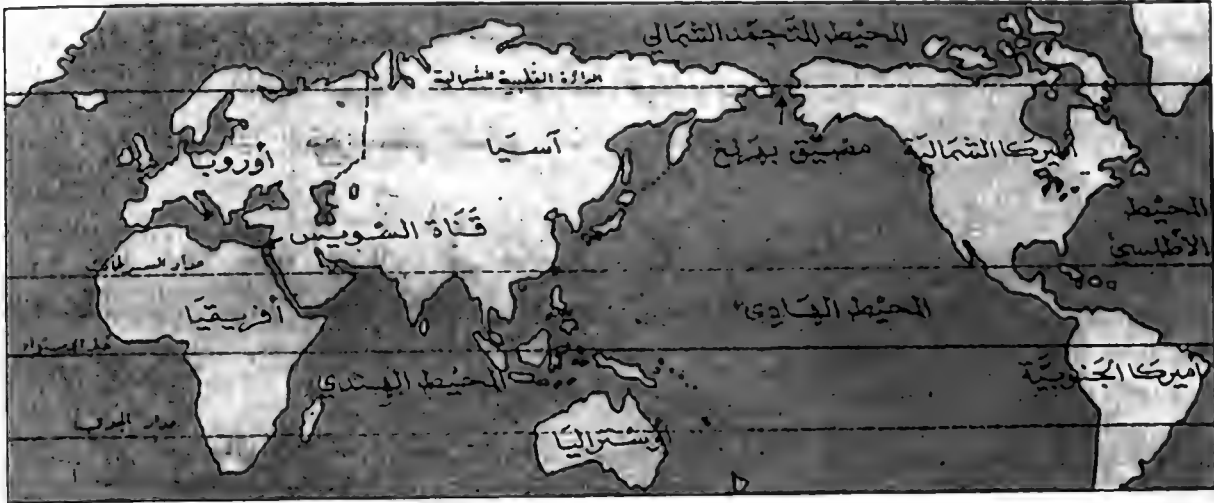 المحيط المتجمد الشمالي
الدائرة القطبية الشمالية
آسيا
أوروبا
مضيق بهرنغ
أميركا الشمالية
المحيط
الأطلسي
قناة السويس
مدار السرطان
أفريقيا
المحيط الهادي
خط الاستواء
المحيط الهندي
أميركا الجنوبية
مدار الجدي
أوستراليا